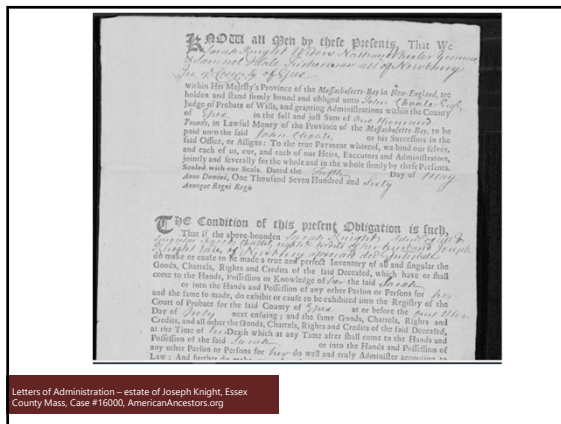 KNOW all Men by these Presents, That We
Sarah Knight Widow Nathan Wheeler
& Samuel Hale all of Newbury
In ye County of Essex
within His Majesty's Province of the Massachusetts-Bay in New-England, are
holden and stand firmly bound and obliged unto John Choate Esqr
Judge of Probate of Wills, and granting Administrations within the County
of Essex in the full and just Sum of One thousand
Pounds, in Lawful Money of the Province of the Massachusetts-Bay, to be
paid unto the said John Choate, or his Successors in the
said Office, or Assigns: To the true Payment whereof, we bind our selves,
and each of us, our, and each of our Heirs, Executors and Administrators,
jointly and severally for the whole and in the whole firmly by these Presents.
Sealed with our Seals. Dated the Day of May
Anno Domini, One Thousand Seven Hundred and Sixty
Annoque Regni Regis
THE Condition of this present Obligation is such,
That if the above-bounden Sarah Knight,
rights of her husband Joseph
Knight late of Newbury
do make or cause to be made a true and perfect Inventory of all and singular the
Goods, Chattels, Rights and Credits of the said Deceased, which have or shall
come to the Hands, Possession or Knowledge of her the said Sarah
or into the Hands and Possession of any other Person or Persons for her
and the same so made, do exhibit or cause to be exhibited into the Registry of the
Court of Probate for the said County of Essex at or before the
Day of July next ensuing; and the same Goods, Chattels, Rights and
Credits, and all other the Goods, Chattels, Rights and Credits of the said Deceased,
at the Time of Death which at any Time after shall come to the Hands and
Possession of the said Sarah or into the Hands and Possession of
any other Person or Persons for her do well and truly Administer according to
Law: And further do make
Letters of Administration – estate of Joseph Knight, Essex
County Mass, Case #16000, AmericanAncestors.org